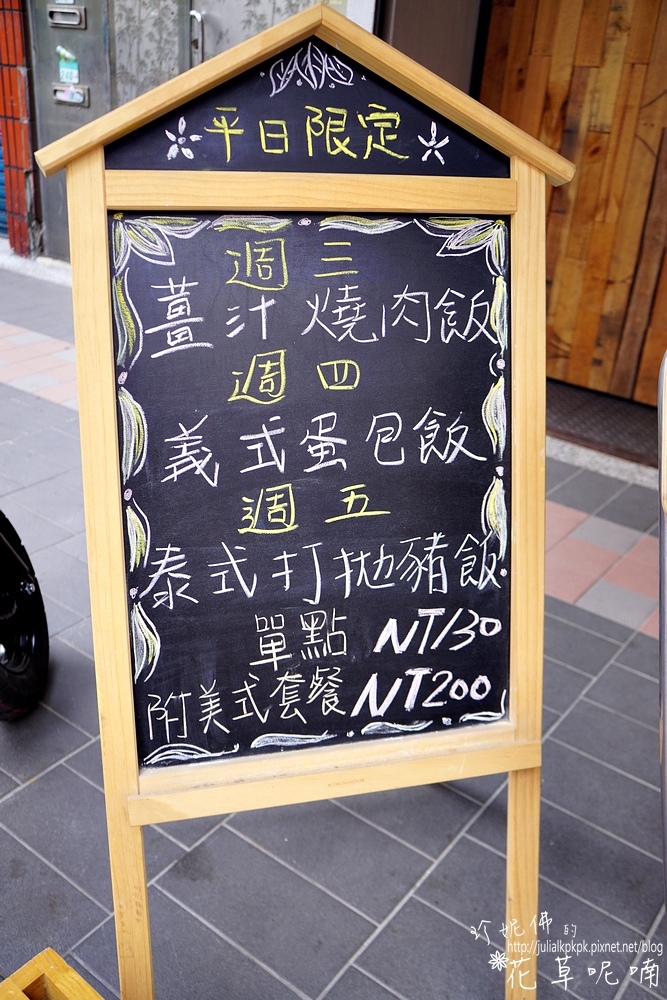 平日限定
週三
薑汁燒肉飯
週四
義式蛋包飯
週五
泰式打拋豬飯
單點 NT130
附美式套餐 NT200
珍妮佛的
http://julialkpkpk.pixnet.net/blog
花草呢喃